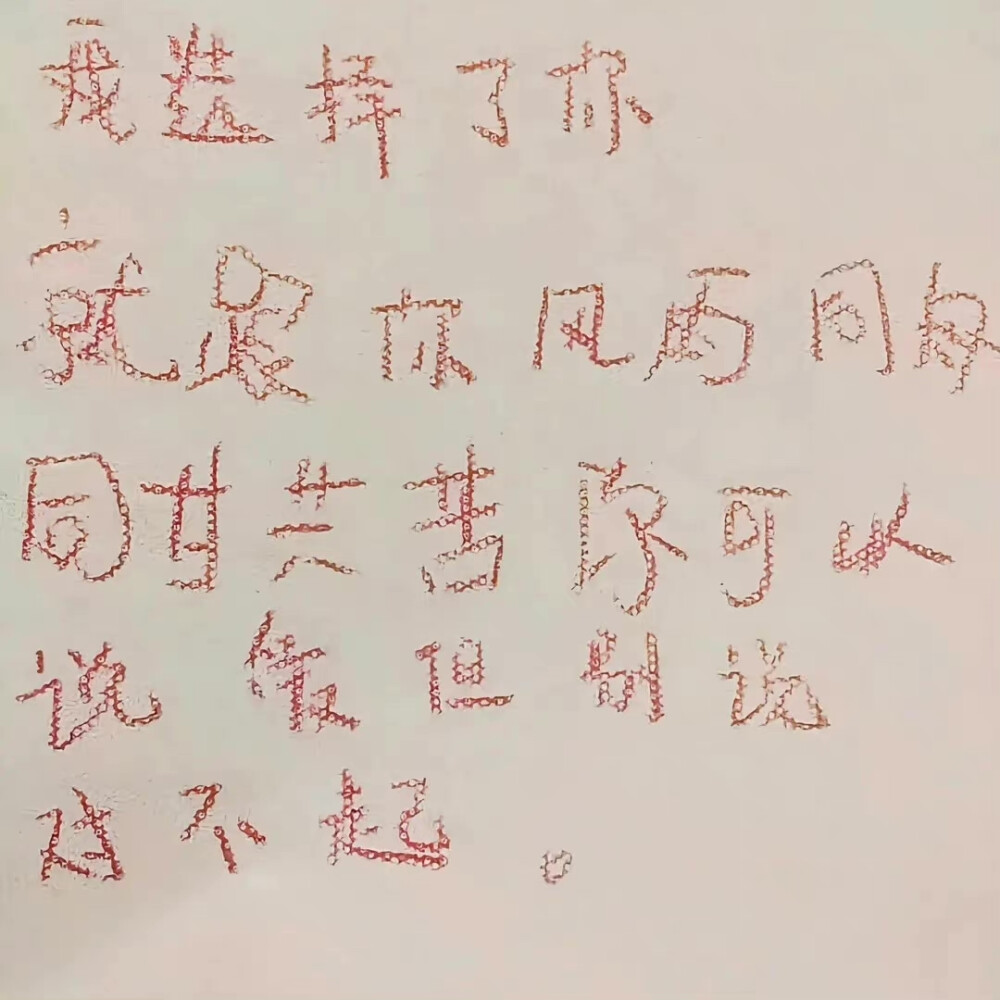 我选择了你
就是你风雨同舟
同甘共苦你可以
说但别说
对不起。